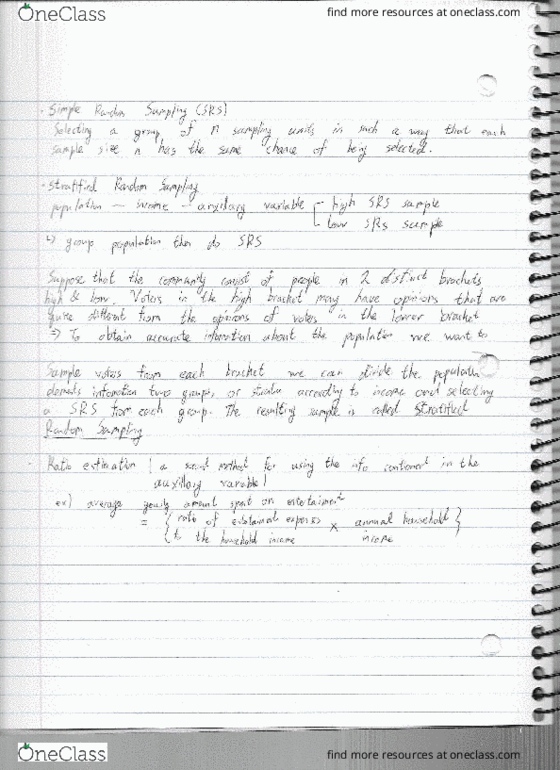 OneClass
find more resources at oneclass.com
· Simple Random Sampling (SRS)
Selecting a group of n sampling units in such a way that each
sample size n has the same chance of being selected.
· Stratified Random Sampling
population — income — auxiliary variable high SRS sample
low SRS sample
↳ group population then do SRS
Suppose that the community consist of people in 2 distinct brackets
high & low. Voters in the high bracket may have opinions that are
quite different from the opinions of voters in the lower bracket
⇒ To obtain accurate information about the population we want to
Sample voters from each bracket we can divide the population
elements into two groups, or strata according to income and selecting
a SRS from each group. The resulting sample is called Stratified
Random Sampling
· Ratio estimation (a second method for using the info contained in the
auxillary variable)
ex) average yearly amount spent on entertainment
= { ratio of entertainment expenses × annual household }
{ to the household income income
OneClass
find more resources at oneclass.com